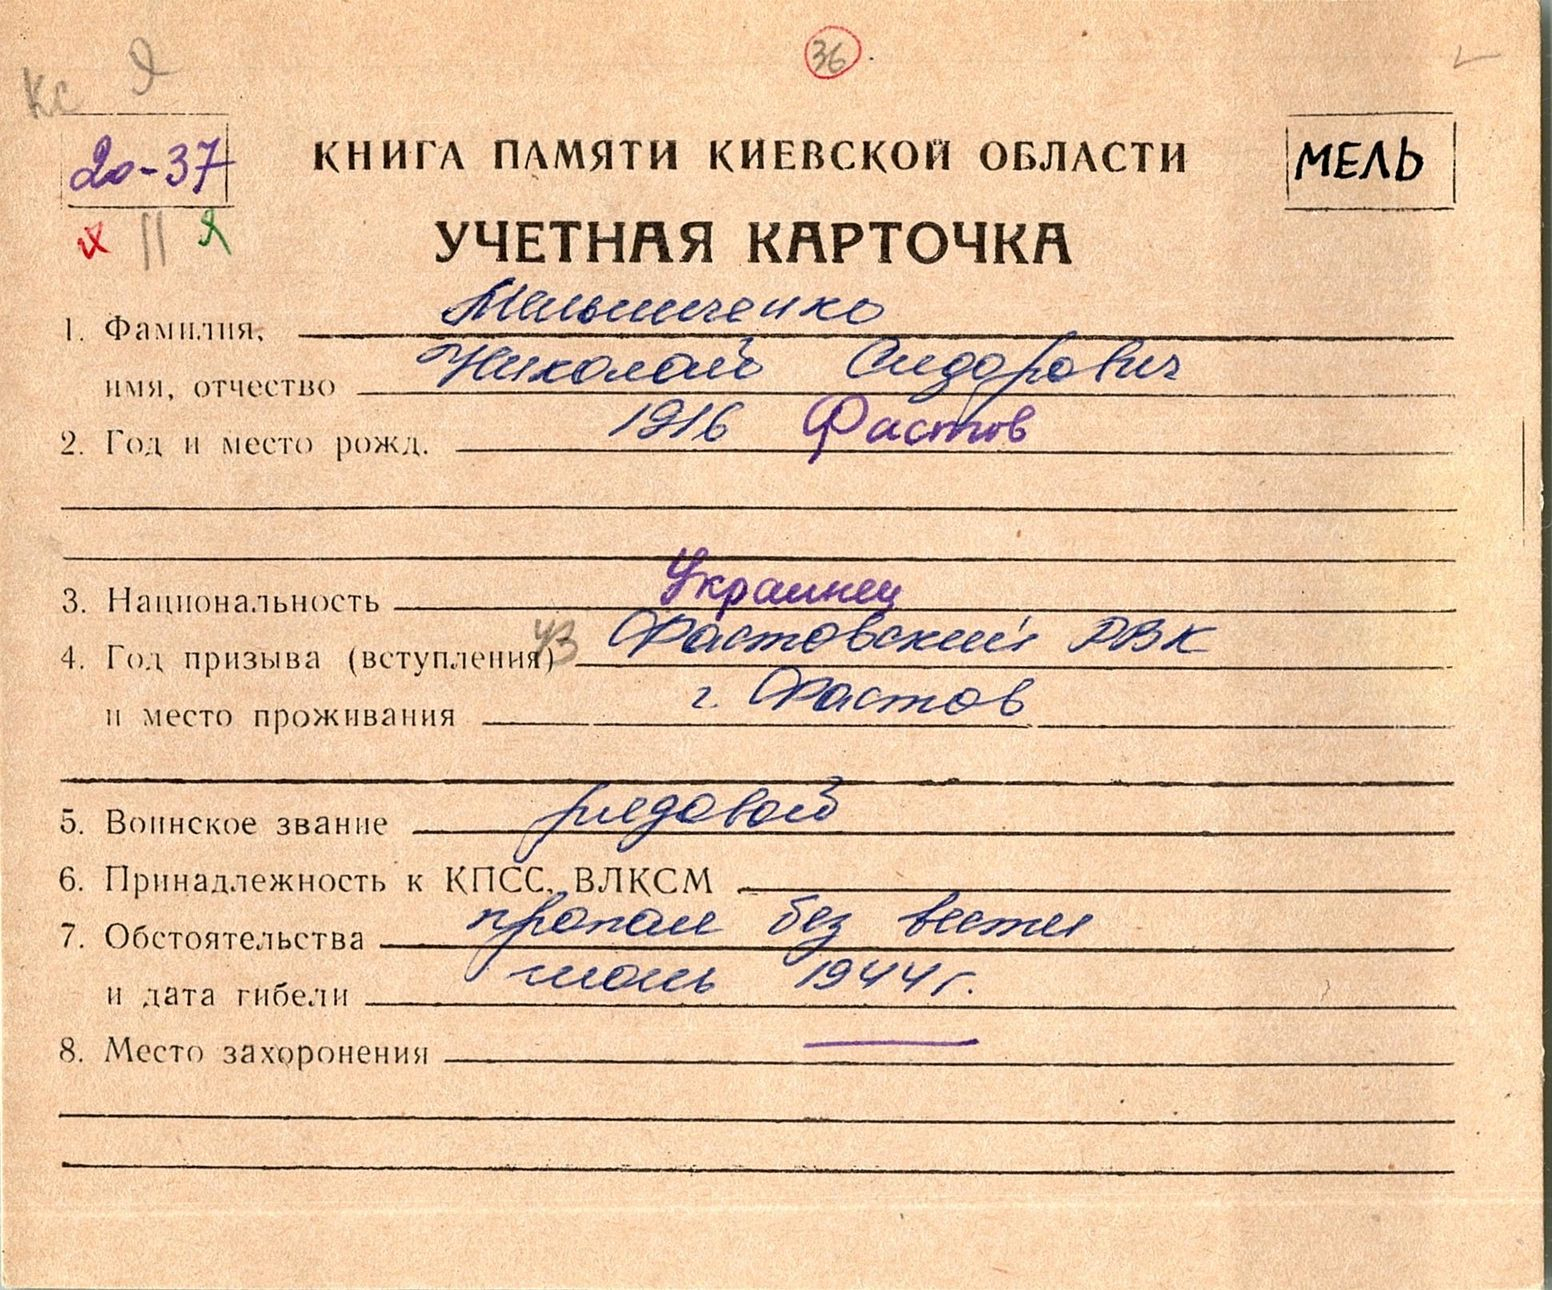 36
Кс Я
20-37
КНИГА ПАМЯТИ КИЕВСКОЙ ОБЛАСТИ
МЕЛЬ
УЧЕТНАЯ КАРТОЧКА
1. Фамилия, Мельниченко
имя, отчество Николай Сидорович
2. Год и место рожд. 1916 Фастов
3. Национальность Украинец
4. Год призыва (вступления) Фастовский РВК
и место проживания г. Фастов
5. Воинское звание рядовой
6. Принадлежность к КПСС, ВЛКСМ
7. Обстоятельства пропал без вести
и дата гибели 1944 г.
8. Место захоронения —